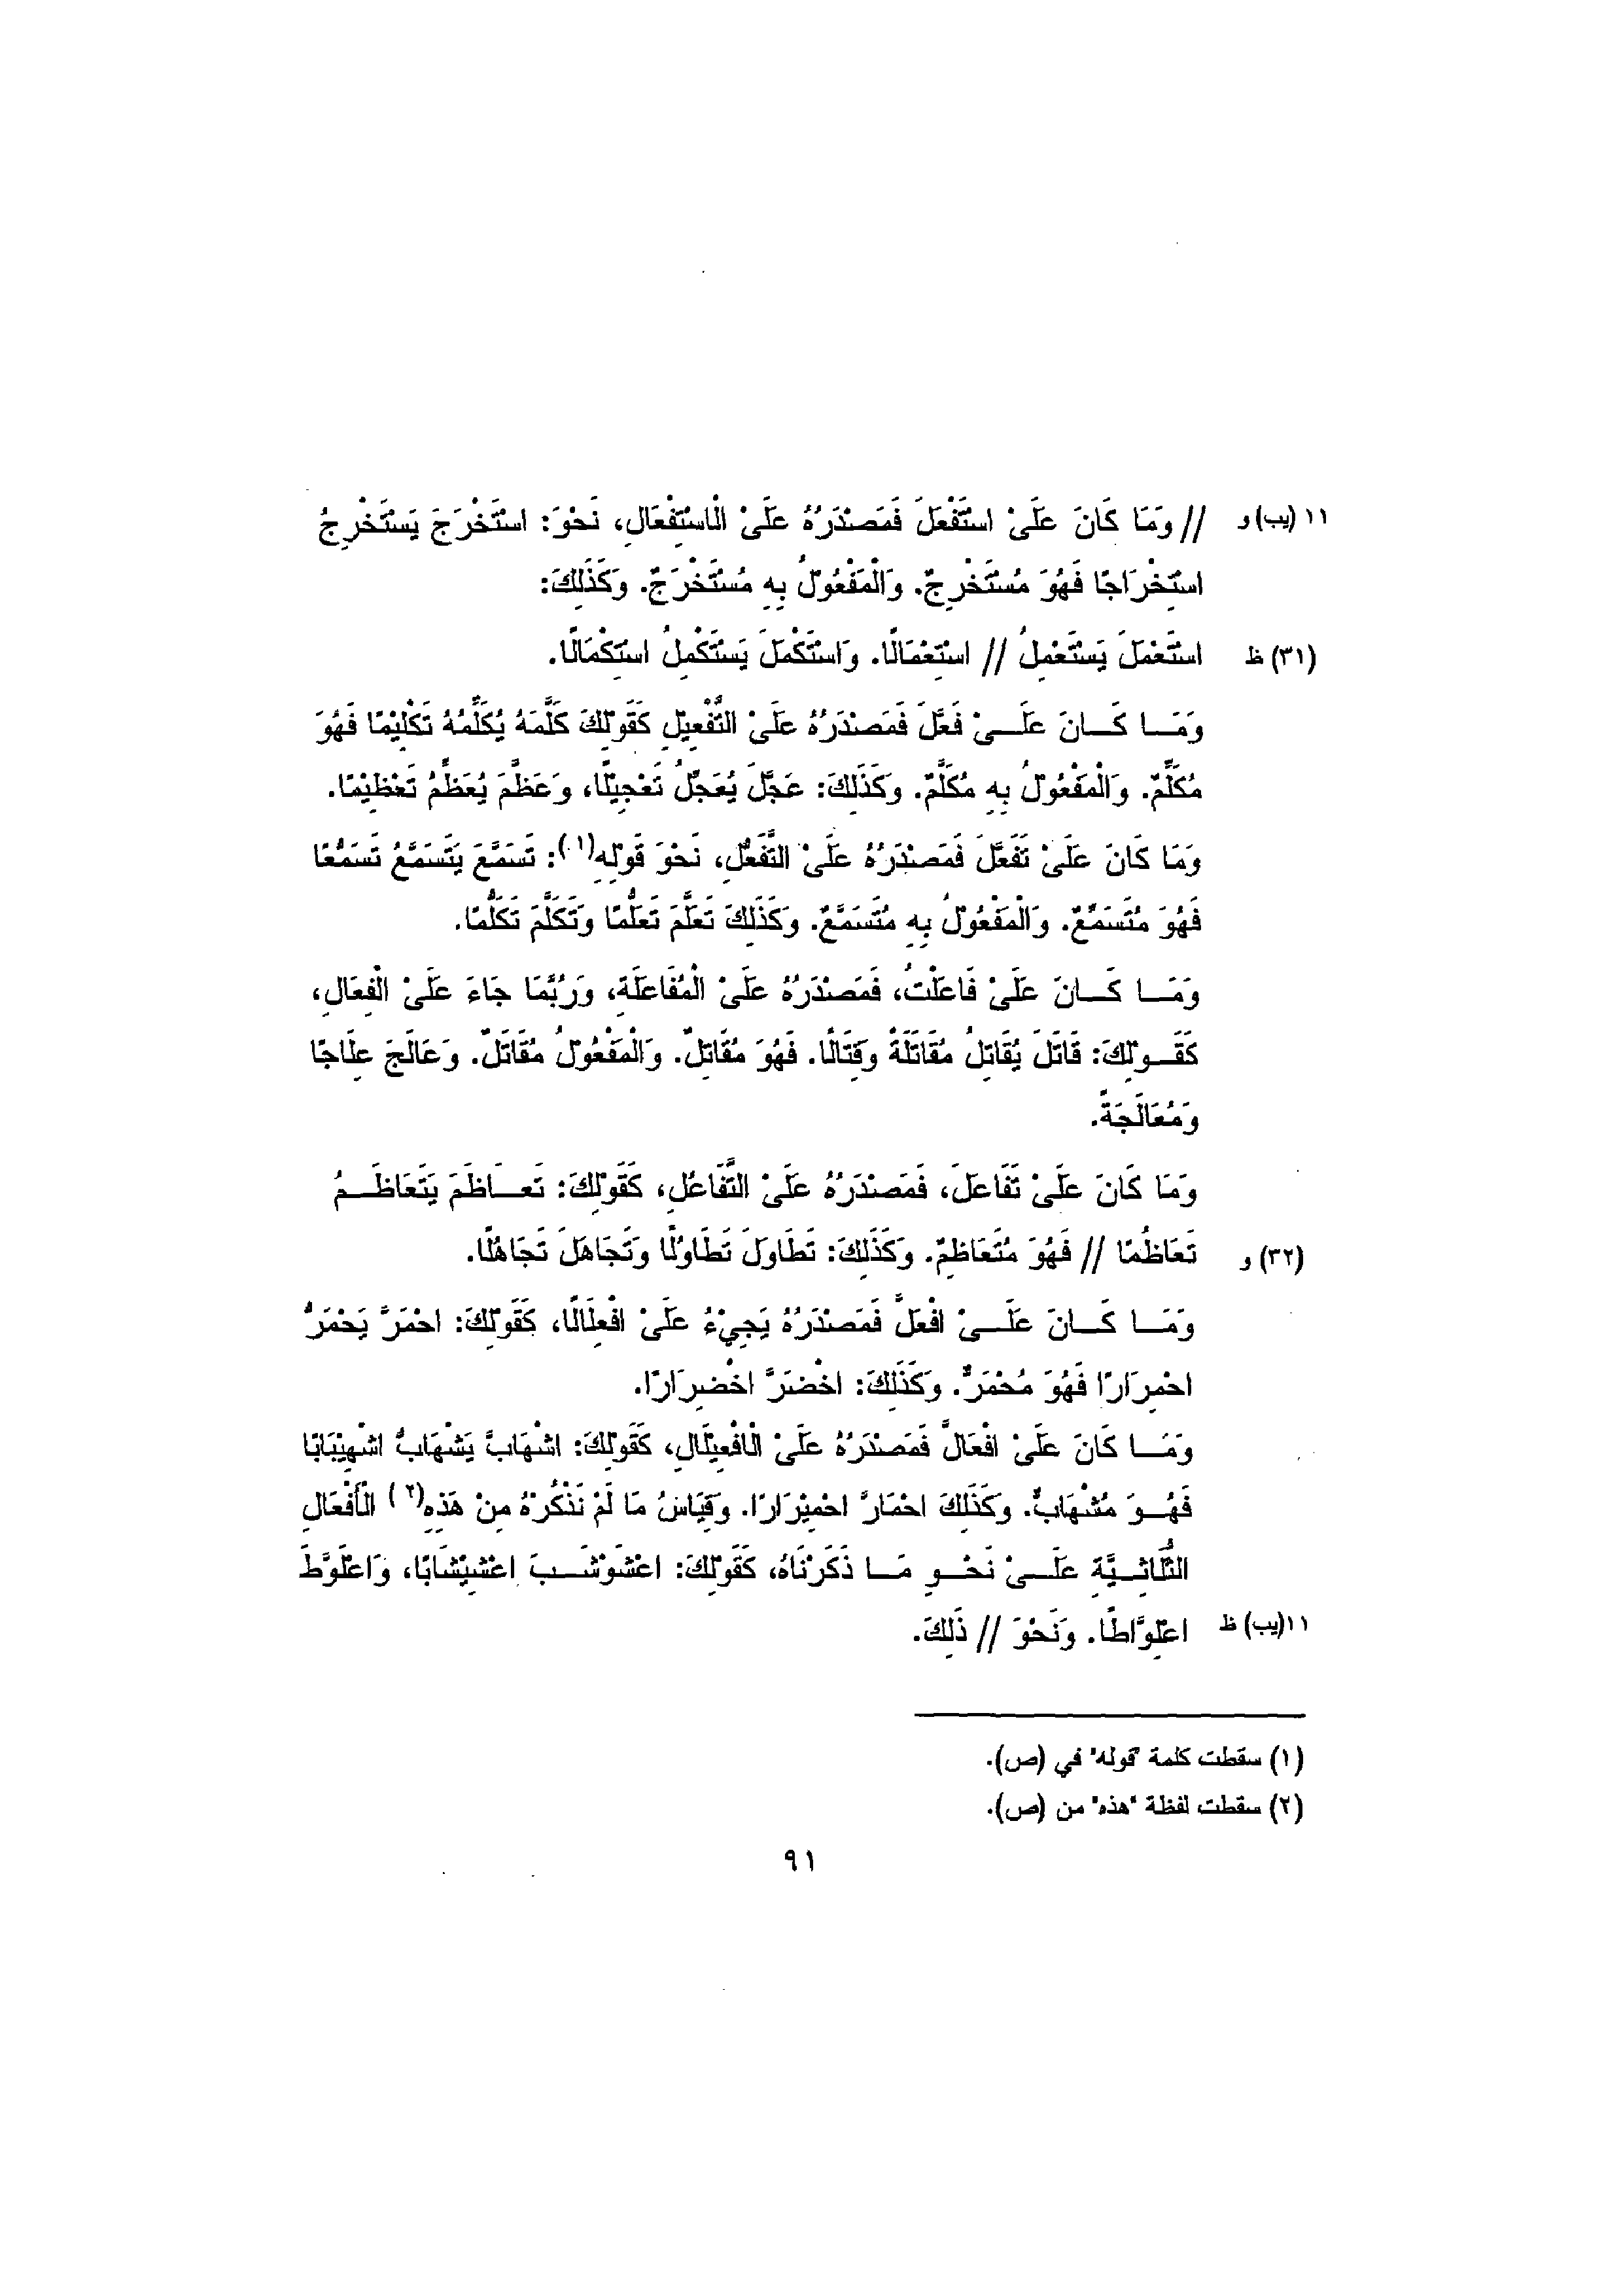 ١١ (يب) و // وَمَا كَانَ عَلَىْ اسْتَفْعَلَ فَمَصْدَرُهُ عَلَىْ الْاسْتِفْعَالِ، نَحْوَ: اسْتَخْرَجَ يَسْتَخْرِجُ
اسْتِخْرَاجًا فَهُوَ مُسْتَخْرِجٌ. وَالْمَفْعُوْلُ بِهِ مُسْتَخْرَجٌ. وَكَذَلِكَ:
(٣١) ظ اسْتَعْمَلَ يَسْتَعْمِلُ // اسْتِعْمَالًا. وَاسْتَكْمَلَ يَسْتَكْمِلُ اسْتِكْمَالًا.
وَمَـــا كَـــانَ عَلَـــىْ فَعَّلَ فَمَصْدَرُهُ عَلَىْ التَّفْعِيْلِ كَقَوْلِكَ كَلَّمَهُ يُكَلِّمُهُ تَكْلِيْمًا فَهُوَ
مُكَلِّمٌ. وَالْمَفْعُوْلُ بِهِ مُكَلَّمٌ. وَكَذَلِكَ: عَجَّلَ يُعَجِّلُ تَعْجِيْلًا، وَعَظَّمَ يُعَظِّمُ تَعْظِيْمًا.
وَمَا كَانَ عَلَىْ تَفَعَّلَ فَمَصْدَرُهُ عَلَىْ التَّفَعُّلِ، نَحْوَ قَوْلِهِ(١): تَسَمَّعَ يَتَسَمَّعُ تَسَمُّعًا
فَهُوَ مُتَسَمِّعٌ. وَالْمَفْعُوْلُ بِهِ مُتَسَمَّعٌ. وَكَذَلِكَ تَعَلَّمَ تَعَلُّمًا وَتَكَلَّمَ تَكَلُّمًا.
وَمَـــا كَـــانَ عَلَىْ فَاعَلْتُ، فَمَصْدَرُهُ عَلَىْ الْمُفَاعَلَةِ، وَرُبَّمَا جَاءَ عَلَىْ الْفِعَالِ،
كَقَـــوْلِكَ: قَاتَلَ يُقَاتِلُ مُقَاتَلَةً وَقِتَالًا. فَهُوَ مُقَاتِلٌ. وَالْمَفْعُوْلُ مُقَاتَلٌ. وَعَالَجَ عِلَاجًا
وَمُعَالَجَةً.
وَمَا كَانَ عَلَىْ تَفَاعَلَ، فَمَصْدَرُهُ عَلَىْ التَّفَاعُلِ، كَقَوْلِكَ: تَعـــَاظَمَ يَتَعَاظَـــمُ
(٣٢) و تَعَاظُمًا // فَهُوَ مُتَعَاظِمٌ. وَكَذَلِكَ: تَطَاوَلَ تَطَاوُلًا وَتَجَاهَلَ تَجَاهُلًا.
وَمَـــا كَـــانَ عَلَـــىْ افْعَلَّ فَمَصْدَرُهُ يَجِيْءُ عَلَىْ افْعِلَالًا، كَقَوْلِكَ: احْمَرَّ يَحْمَرُّ
احْمِرَارًا فَهُوَ مُحْمَرٌّ. وَكَذَلِكَ: اخْضَرَّ اخْضِرَارًا.
وَمَـــا كَانَ عَلَىْ افْعَالَّ فَمَصْدَرُهُ عَلَىْ الْافْعِيْلَالِ، كَقَوْلِكَ: اشْهَابَّ يَشْهَابُّ اشْهِيْبَابًا
فَهُـــوَ مُشْهَابٌّ. وَكَذَلِكَ احْمَارَّ احْمِيْرَارًا. وَقِيَاسُ مَا لَمْ نَذْكُرْهُ مِنْ هَذِهِ(٢) الْأَفْعَالِ
الثُّلَاثِـــيَّةِ عَلَـــىْ نَحْـــوِ مَـــا ذَكَرْنَاهُ، كَقَوْلِكَ: اعْشَوْشَـــبَ اعْشِيْشَابًا، وَاعْلَوَّطَ
١١(يب) ظ اعْلِوَّاطًا. وَنَحْوَ // ذَلِكَ.
(١) سقطت كلمة "قوله" في (ص).
(٢) سقطت لفظة "هذه" من (ص).
٩١